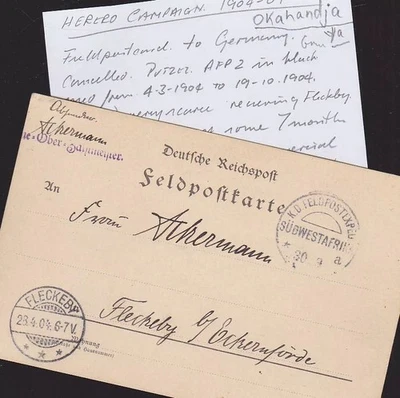 HERERO CAMPAIGN. 1904-0
OKahandja
Fieldpostcard. to Germany.
Cancelled. Putzel. AFP 2 in black
used from 4-3-1904 to 19-10.1904.
receiving Fleckeby.
some 7 months
Absender.
Ackermann
Ober-Zahlmeister.
Deutsche Reichspost
Feldpostkarte
An
Frau Ackermann
K.D. FELDPOSTEXPED
SÜDWESTAFRIKA
* 30 9 a
FLECKEBY
28.4.04. 6-7V.
* * *
Wohnung
Fleckeby b/ Eckernförde